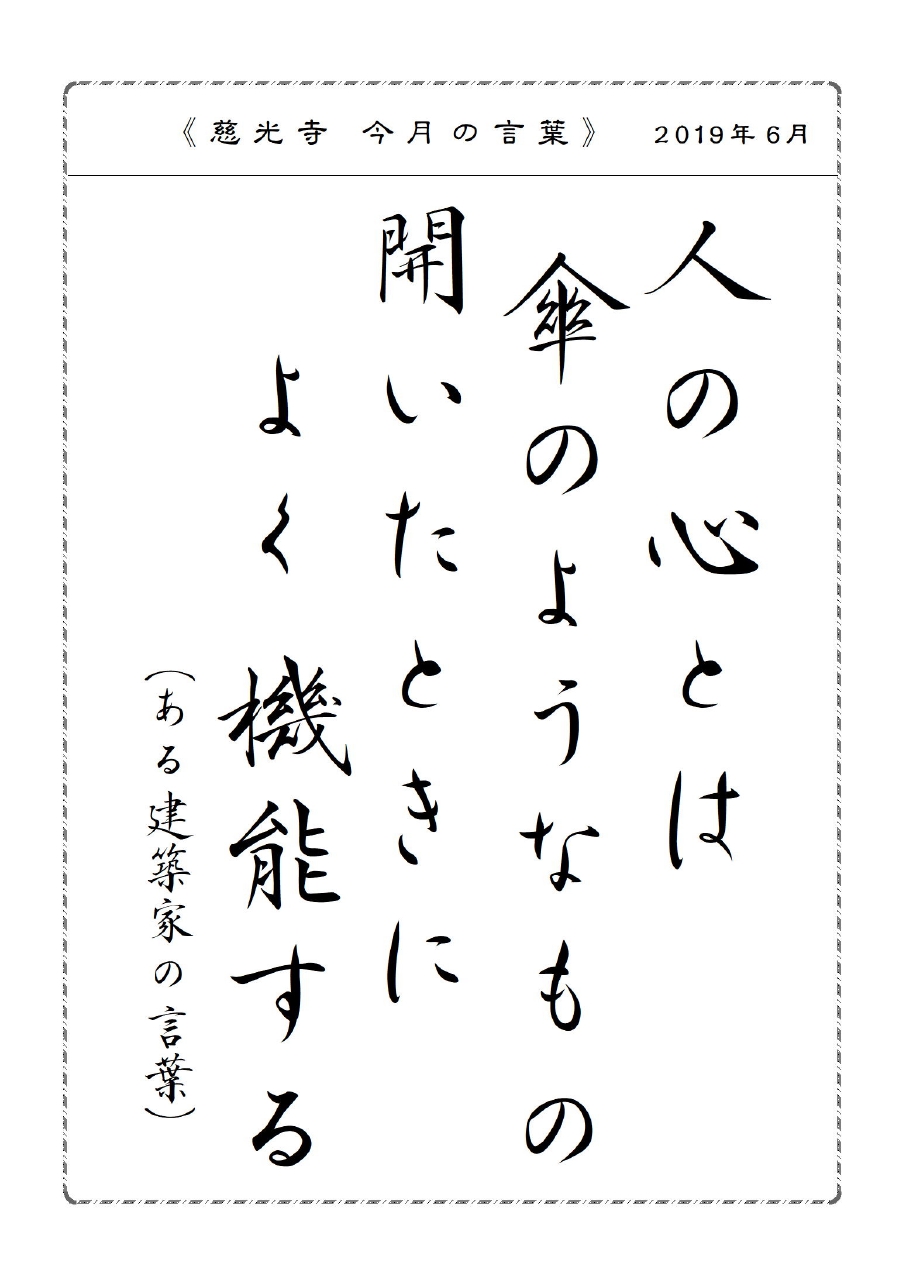 《慈光寺 今月の言葉》 2019年6月
人の心とは
傘のようなもの
開いたときに
よく機能する
(ある建築家の言葉)